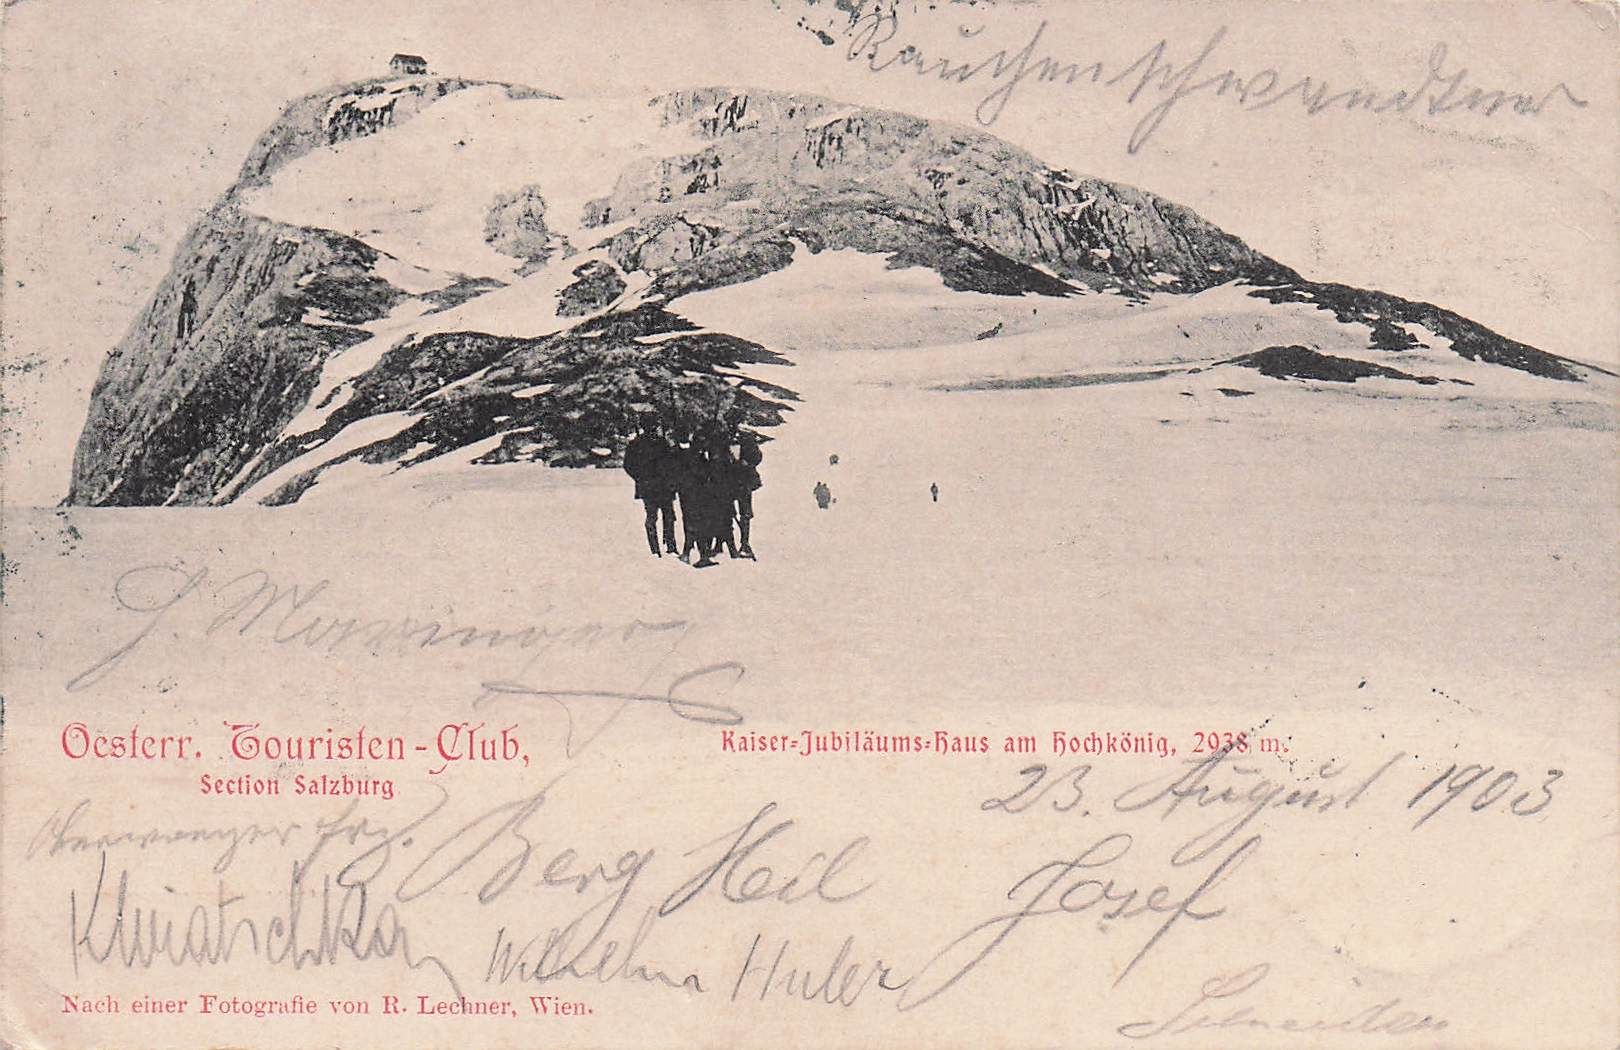 Rauchenschwandtner
Oesterr. Touristen-Club,
Section Salzburg
Kaiser-Jubiläums-Haus am Hochkönig, 2938 m.
23. August 1903
Berg Heil
Josef
Kwiatschka
Wilhelm Huler
Nach einer Fotografie von R. Lechner, Wien.